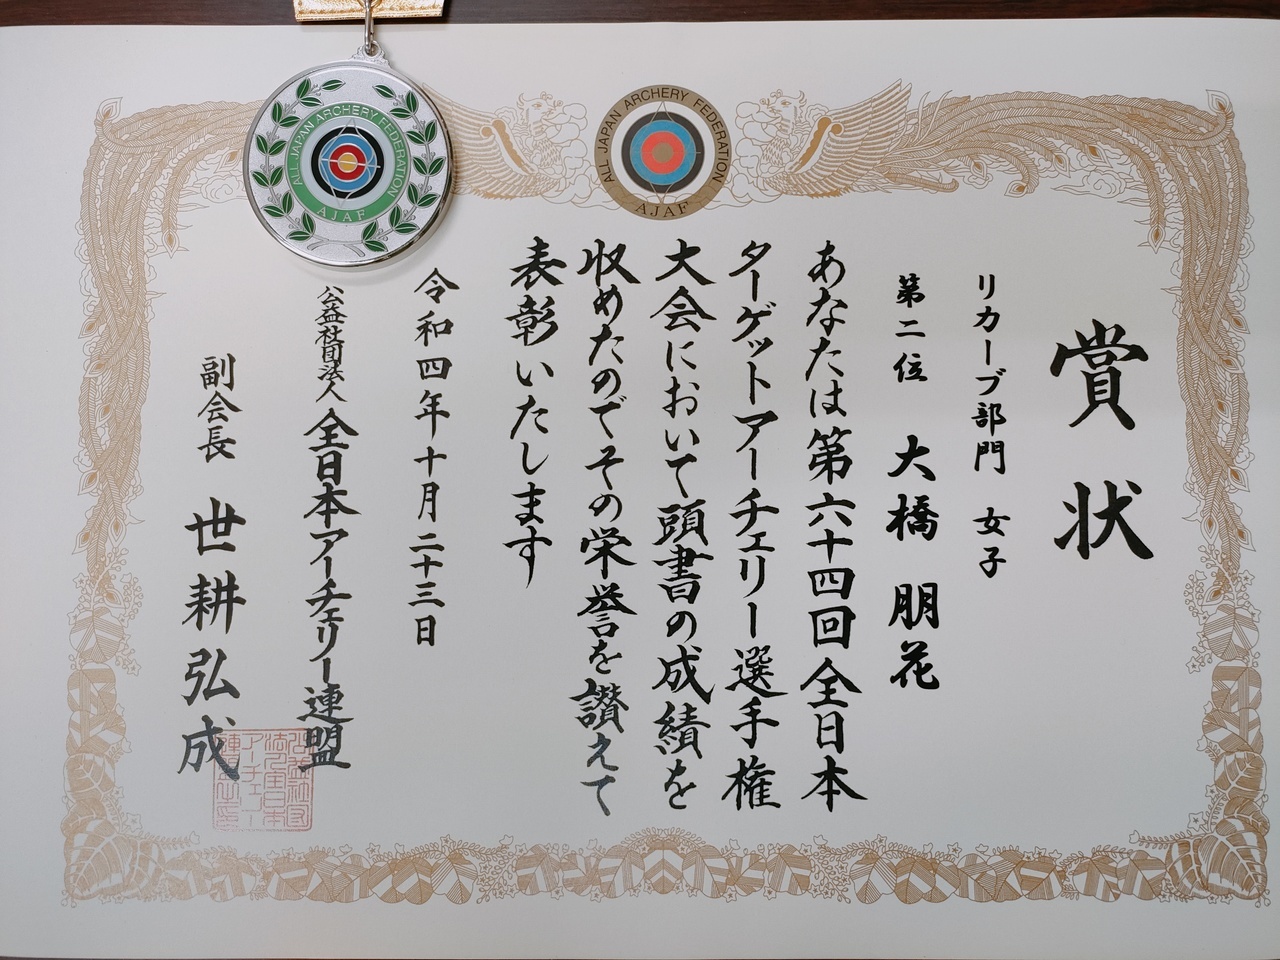 賞状
リカーブ部門 女子
第二位 大橋 朋花
あなたは第六十四回全日本
ターゲットアーチェリー選手権
大会において頭書の成績を
収めたのでその栄誉を讃えて
表彰いたします
令和四年十月二十三日
公益社団法人 全日本アーチェリー連盟
副会長 世耕弘成
ALL JAPAN ARCHERY FEDERATION
AJAF
ALL JAPAN ARCHERY FEDERATION
AJAF